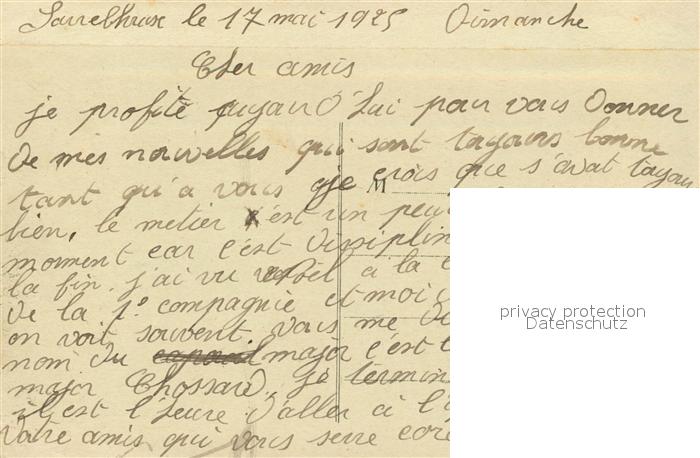 Sarrebruck le 17 mai 1925 Dimanche
Cher amis
je profite aujourd'hui pour vous donner
de mes nouvelles qui sont toujours bonne
tant qu'a vous je crois que s'avat toujou
bien, le metier c'est un peu
moment car c'est disciplin
la fin. j'ai vu à la
de la 1e compagnie et moi
on voit souvent. vous me de
nom du major c'est
major Chossard, je termin
il est l'heure d'aller à l'
votre amis qui vous serre
M
privacy protection
Datenschutz